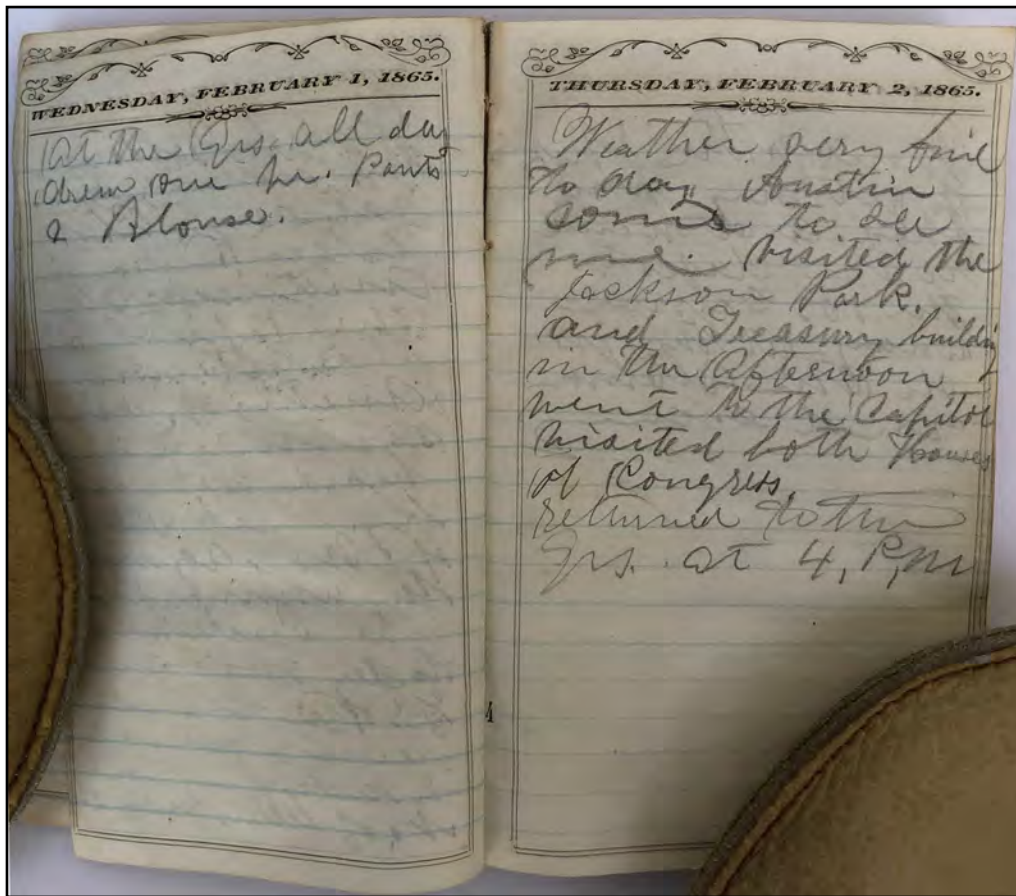 WEDNESDAY, FEBRUARY 1, 1865.
At the Qrs. all day
drew one pr. Pants
& Blouse.
THURSDAY, FEBRUARY 2, 1865.
Weather very fine
to day, Austin
to see
me. visited the
Jackson Park.
and Treasury building
in the Afternoon
went to the Capitol
visited both Houses
of Congress,
returned to the
Qrs. at 4, P,M
4